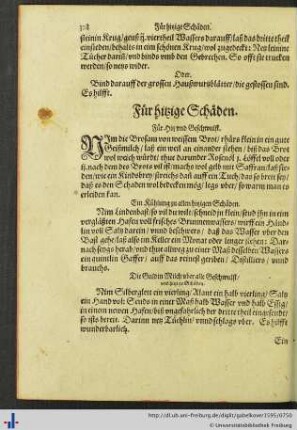 318 Für hitzige Schäden.
steinen Krug / geuß ij. viertheil Wassers darauff / laß das dritte theil
einsieden / behalts in eim schönen Krug / wol zugedeckt: Netz leinine
Tücher darin / und binds umb den Gebrechen. So offt sie trucken
werden / so netz wider.
Oder.
Bind darauff der grossen Haußwurtzblätter / die gestossen sind.
Es hilfft.
Für hitzige Schäden.
Für Hitz und Geschwulst.
NIm die Brosam von weissem Brot / thürs klein in ein gute
Geißmilch / laß ein weil an einander stehen / biß das Brot
wol weich würdt / thue darunder Rosenöl j. löffel voll oder
ij. nach dem des Brots vil ist / machs wol gelb mit Saffran / laß sie-
den / wie ein Kindsbrey / streichs dañ auff ein Tuch / das so breit sey /
daß es den Schaden wol bedecken mög / legs uber / so warm man es
erleiden kan.
Ein Kühlung zu allen hitzigen Schäden.
Nim Lindenbast so vil du wilt / schneid jn klein / stoß jhn in ein
verglästen Hafen voll frisches Brunnenwassers / wurff ein Händ-
lin voll Saltz darein / unnd beschwers / daß das Wasser uber den
Bast gehe / laß also im Keller ein Monat oder lenger stehen: Dar-
nach seyhe herab / und thu allweg zu einer Maß desselben Wassers
ein quintlin Gaffer / auff das reinest geriben / Distilliers / unnd
brauchs.
Die Guldin Milch uber alle Geschwulst /
und hitzige Schäden.
Nim Silberglett ein vierling / Alaut ein halb vierling / Saltz
ein Hand voll: Seuds in einer Maß halb Wasser und halb Essig /
in einem newen Hafen / biß ungefährlich der dritte theil eingeseudt /
so ists bereit. Darinn netz Tüchlin / unnd schlags uber. Es hilfft
wunderbarlich.
Ein
http://dl.ub.uni-freiburg.de/diglit/gabelkover1595/0750
© Universitätsbibliothek Freiburg